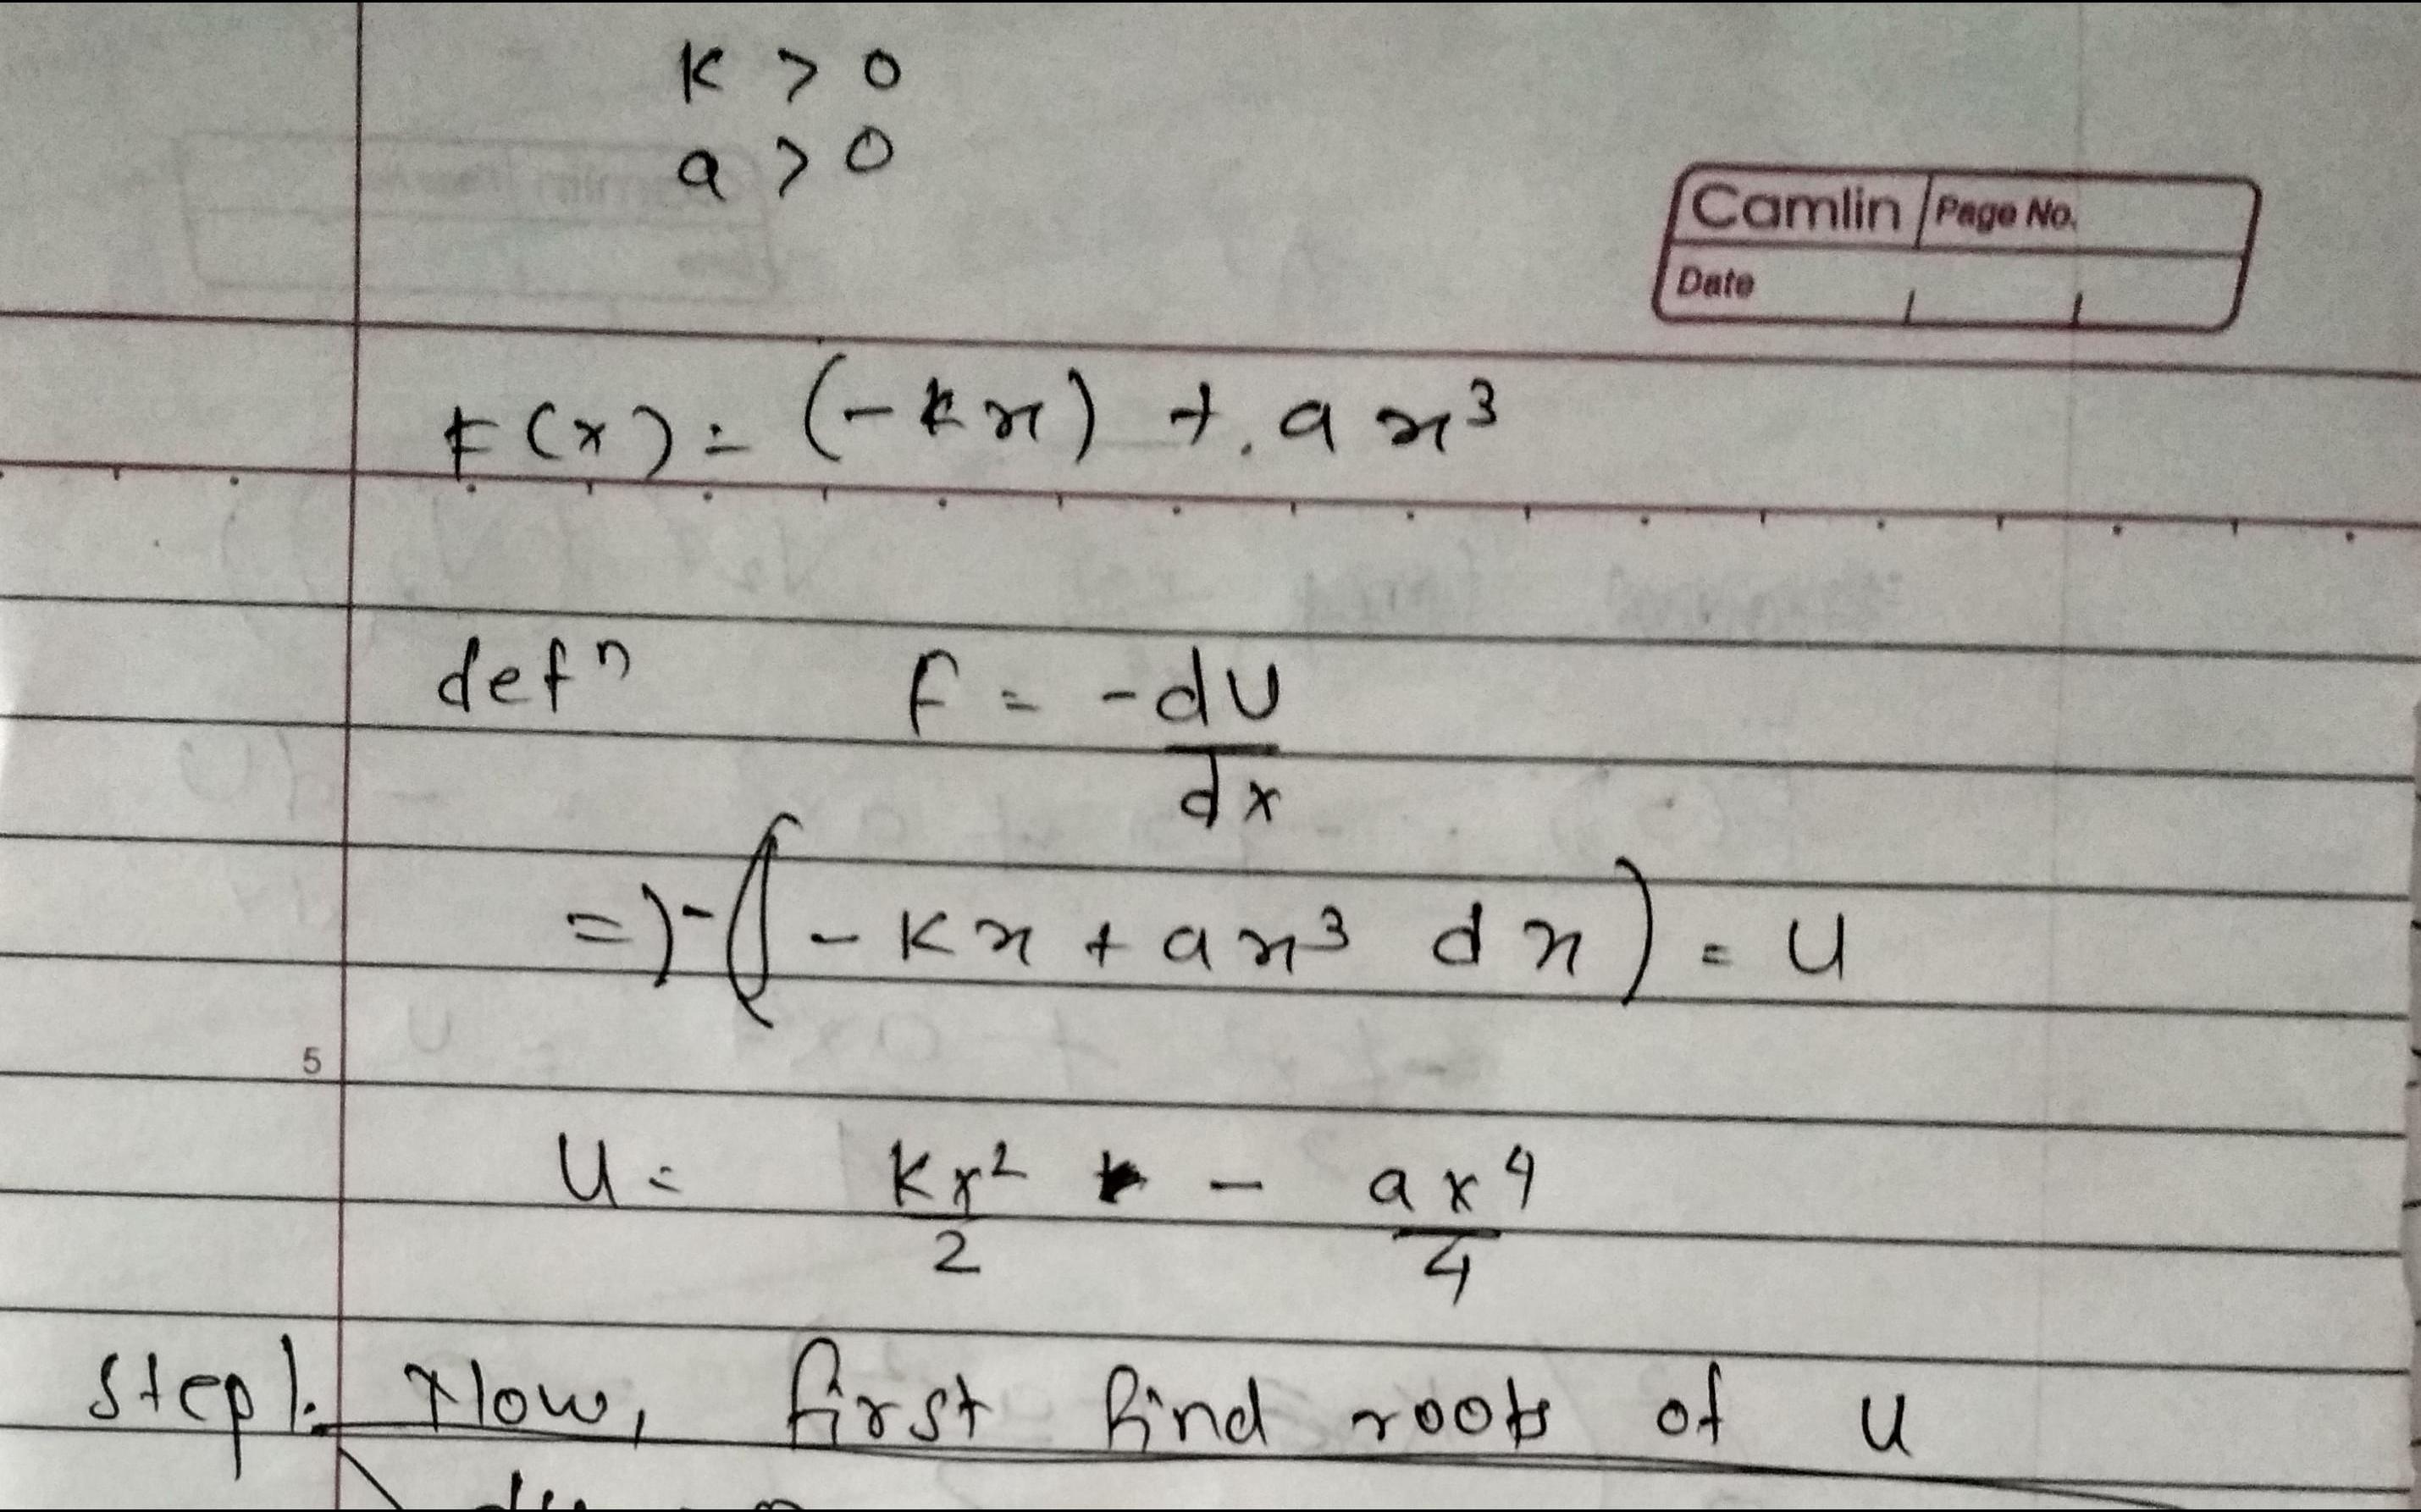 K > 0
a > 0
Camlin Page No.
Date
F(x) = (-kx) + ax³
defⁿ F = -dU/dx
=) -(∫ -Kx + ax³ dx) = U
5
U = Kx²/2 - ax⁴/4
Step 1. Now, first find roots of U